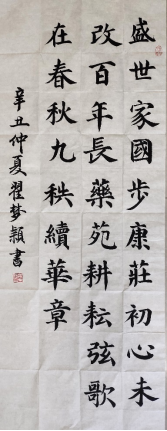 盛世家國步康莊初心未
改百年長藥苑耕耘弦歌
在春秋九秩續華章
辛丑仲夏翟梦穎書